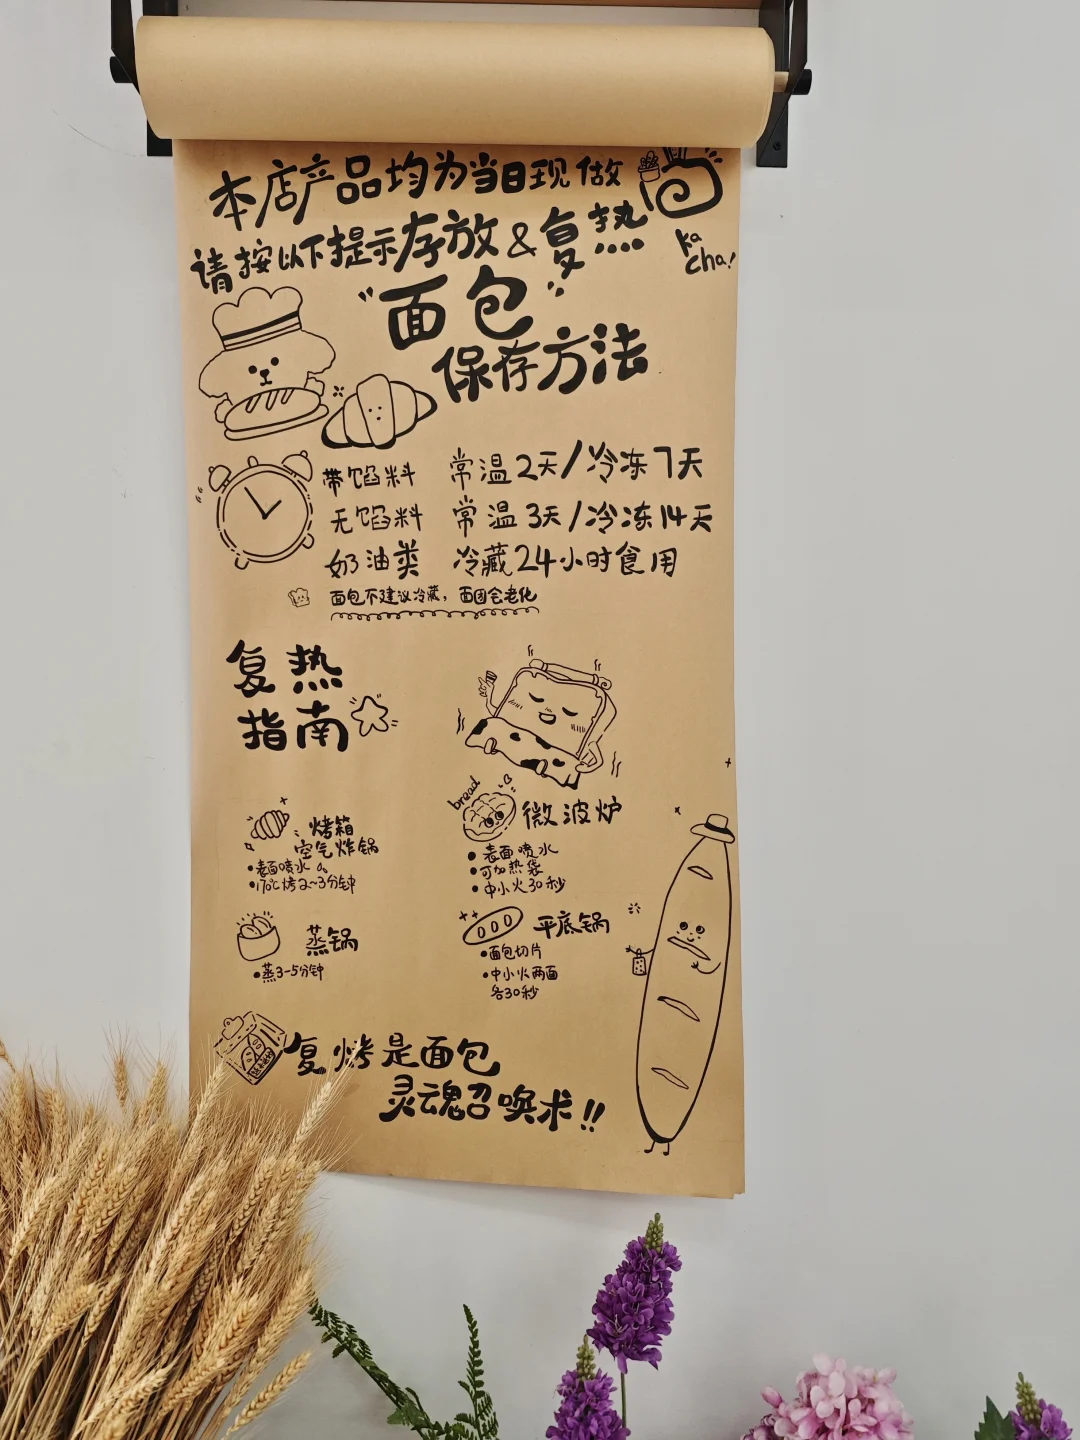 本店产品均为当日现做
请按以下提示存放&复热
ka
cha!
"面包"
保存方法
带馅料 常温2天/冷冻7天
无馅料 常温3天/冷冻14天
奶油类 冷藏24小时食用
面包不建议冷藏，面团会老化
复热
指南
烤箱
空气炸锅
•表面喷水
•170℃烤2~3分钟
bread
微波炉
•表面喷水
•可加热袋
•中小火30秒
蒸锅
•蒸3-5分钟
平底锅
•面包切片
•中小火两面
各30秒
复烤是面包
灵魂召唤术!!